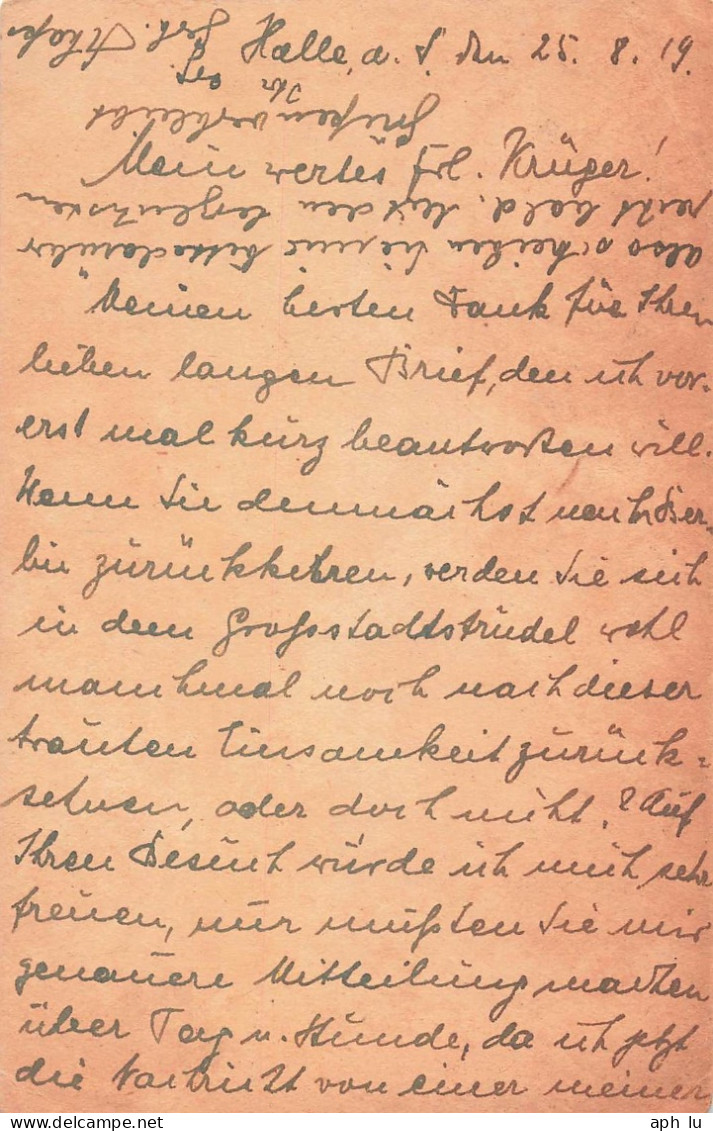 Halle, a. S. den 25. 8. 19.
Mein wertes Frl. Krüger!
Meinen besten Dank für Ihren
lieben langen Brief, den ich vor-
erst mal kurz beantworten will.
Wenn Sie demnächst nach Ber-
lin zurückkehren, werden Sie sich
in dem Großstadtstrudel wohl
manchmal noch nach dieser
trauten Einsamkeit zurück-
sehnen, oder doch nicht? Auf
Ihren Besuch würde ich mich sehr
freuen, nur müßten Sie mir
genauere Mitteilung machen
über Tag u. Stunde, da ich jetzt
die Nachricht von einer meiner
also schreiben Sie mir bitte darüber
recht bald. Mit den herzlichsten
Grüßen verbleibt
Ihr
aph lu